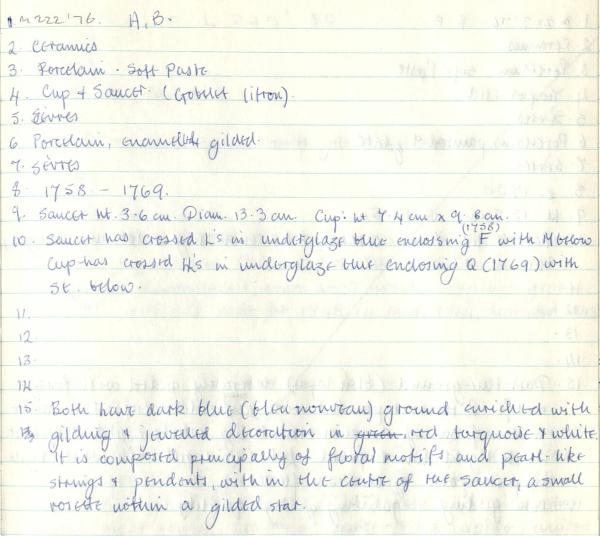 1. M222'76. A.B.
2. Ceramics
3. Porcelain - Soft Paste
4. Cup & Saucer (Gobelet litron).
5. Sèvres
6. Porcelain, enamelled & gilded.
7. Sèvres
8. 1758 - 1769.
9. Saucer ht. 3.6 cm. Diam. 13.3 cm. Cup: ht 7.4 cm x 9.8 cm.
10. Saucer has crossed L's in underglaze blue enclosing F (1758) with M below
Cup has crossed L's in underglaze blue enclosing Q (1769) with
St. below.
11.
12
13.
14
15. Both have dark blue (bleu nouveau) ground enriched with
gilding & jewelled decoration in green, red, turquoise & white.
It is composed principally of floral motifs and pearl-like
strings & pendents, with in the centre of the saucer, a small
rosette within a gilded star.